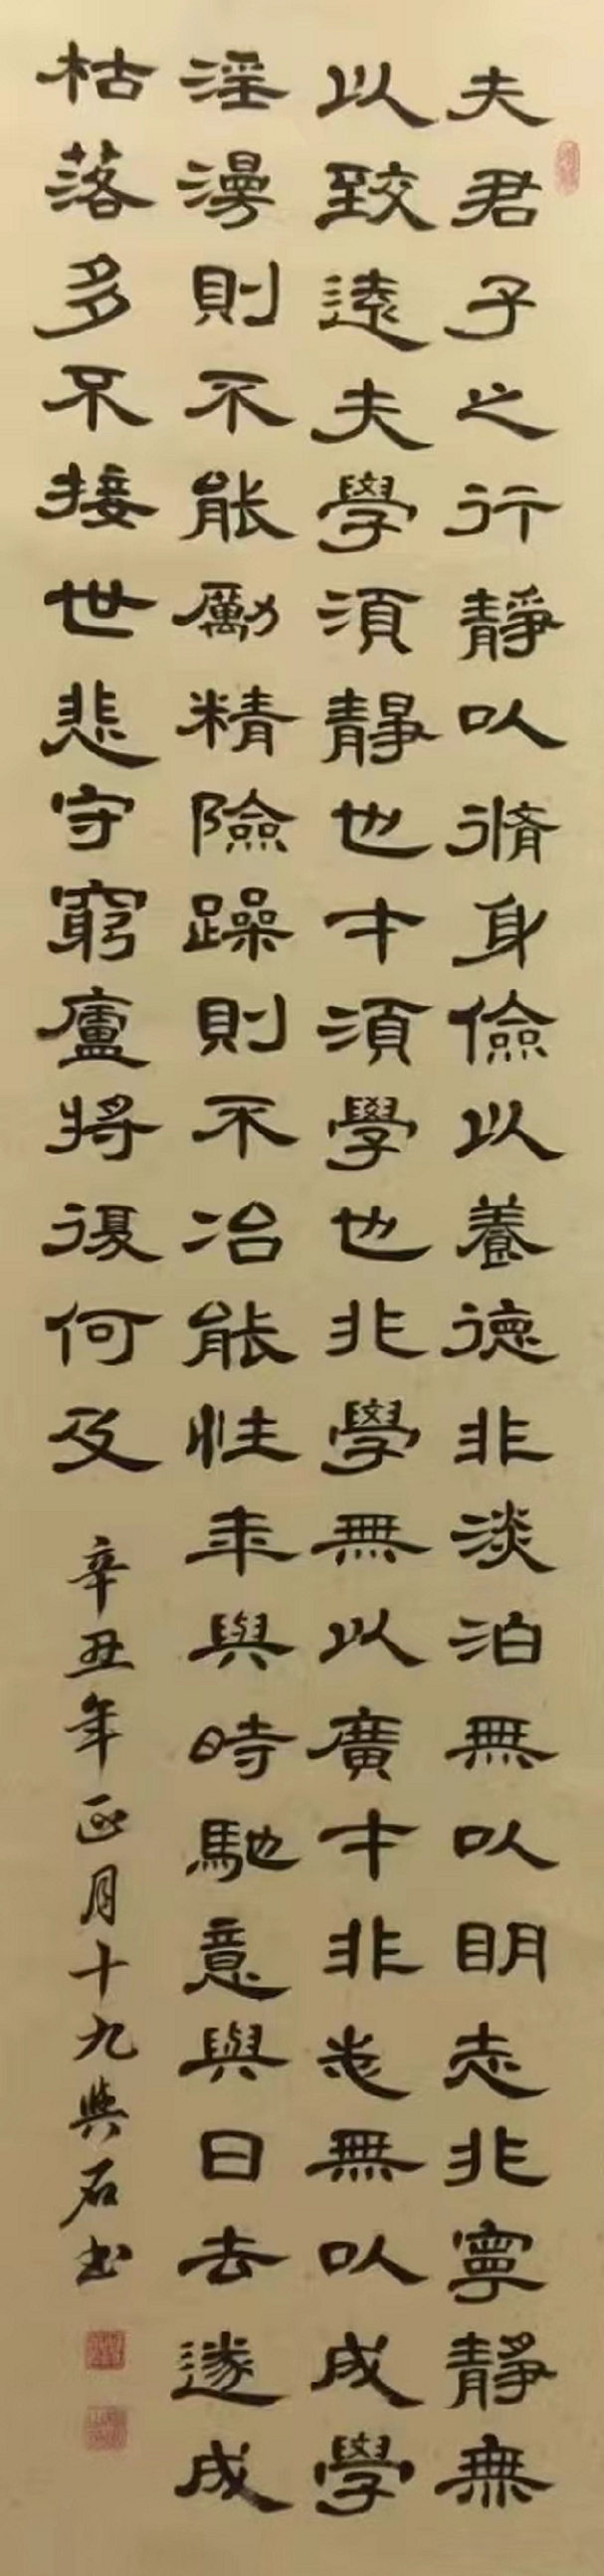 夫君子之行靜以脩身儉以養德非淡泊無以明志非寧靜無
以致遠夫學須靜也才須學也非學無以廣才非志無以成學
淫漫則不能勵精險躁則不冶能性年與時馳意與日去遂成
枯落多不接世悲守窮廬將復何及
辛丑年正月十九石书